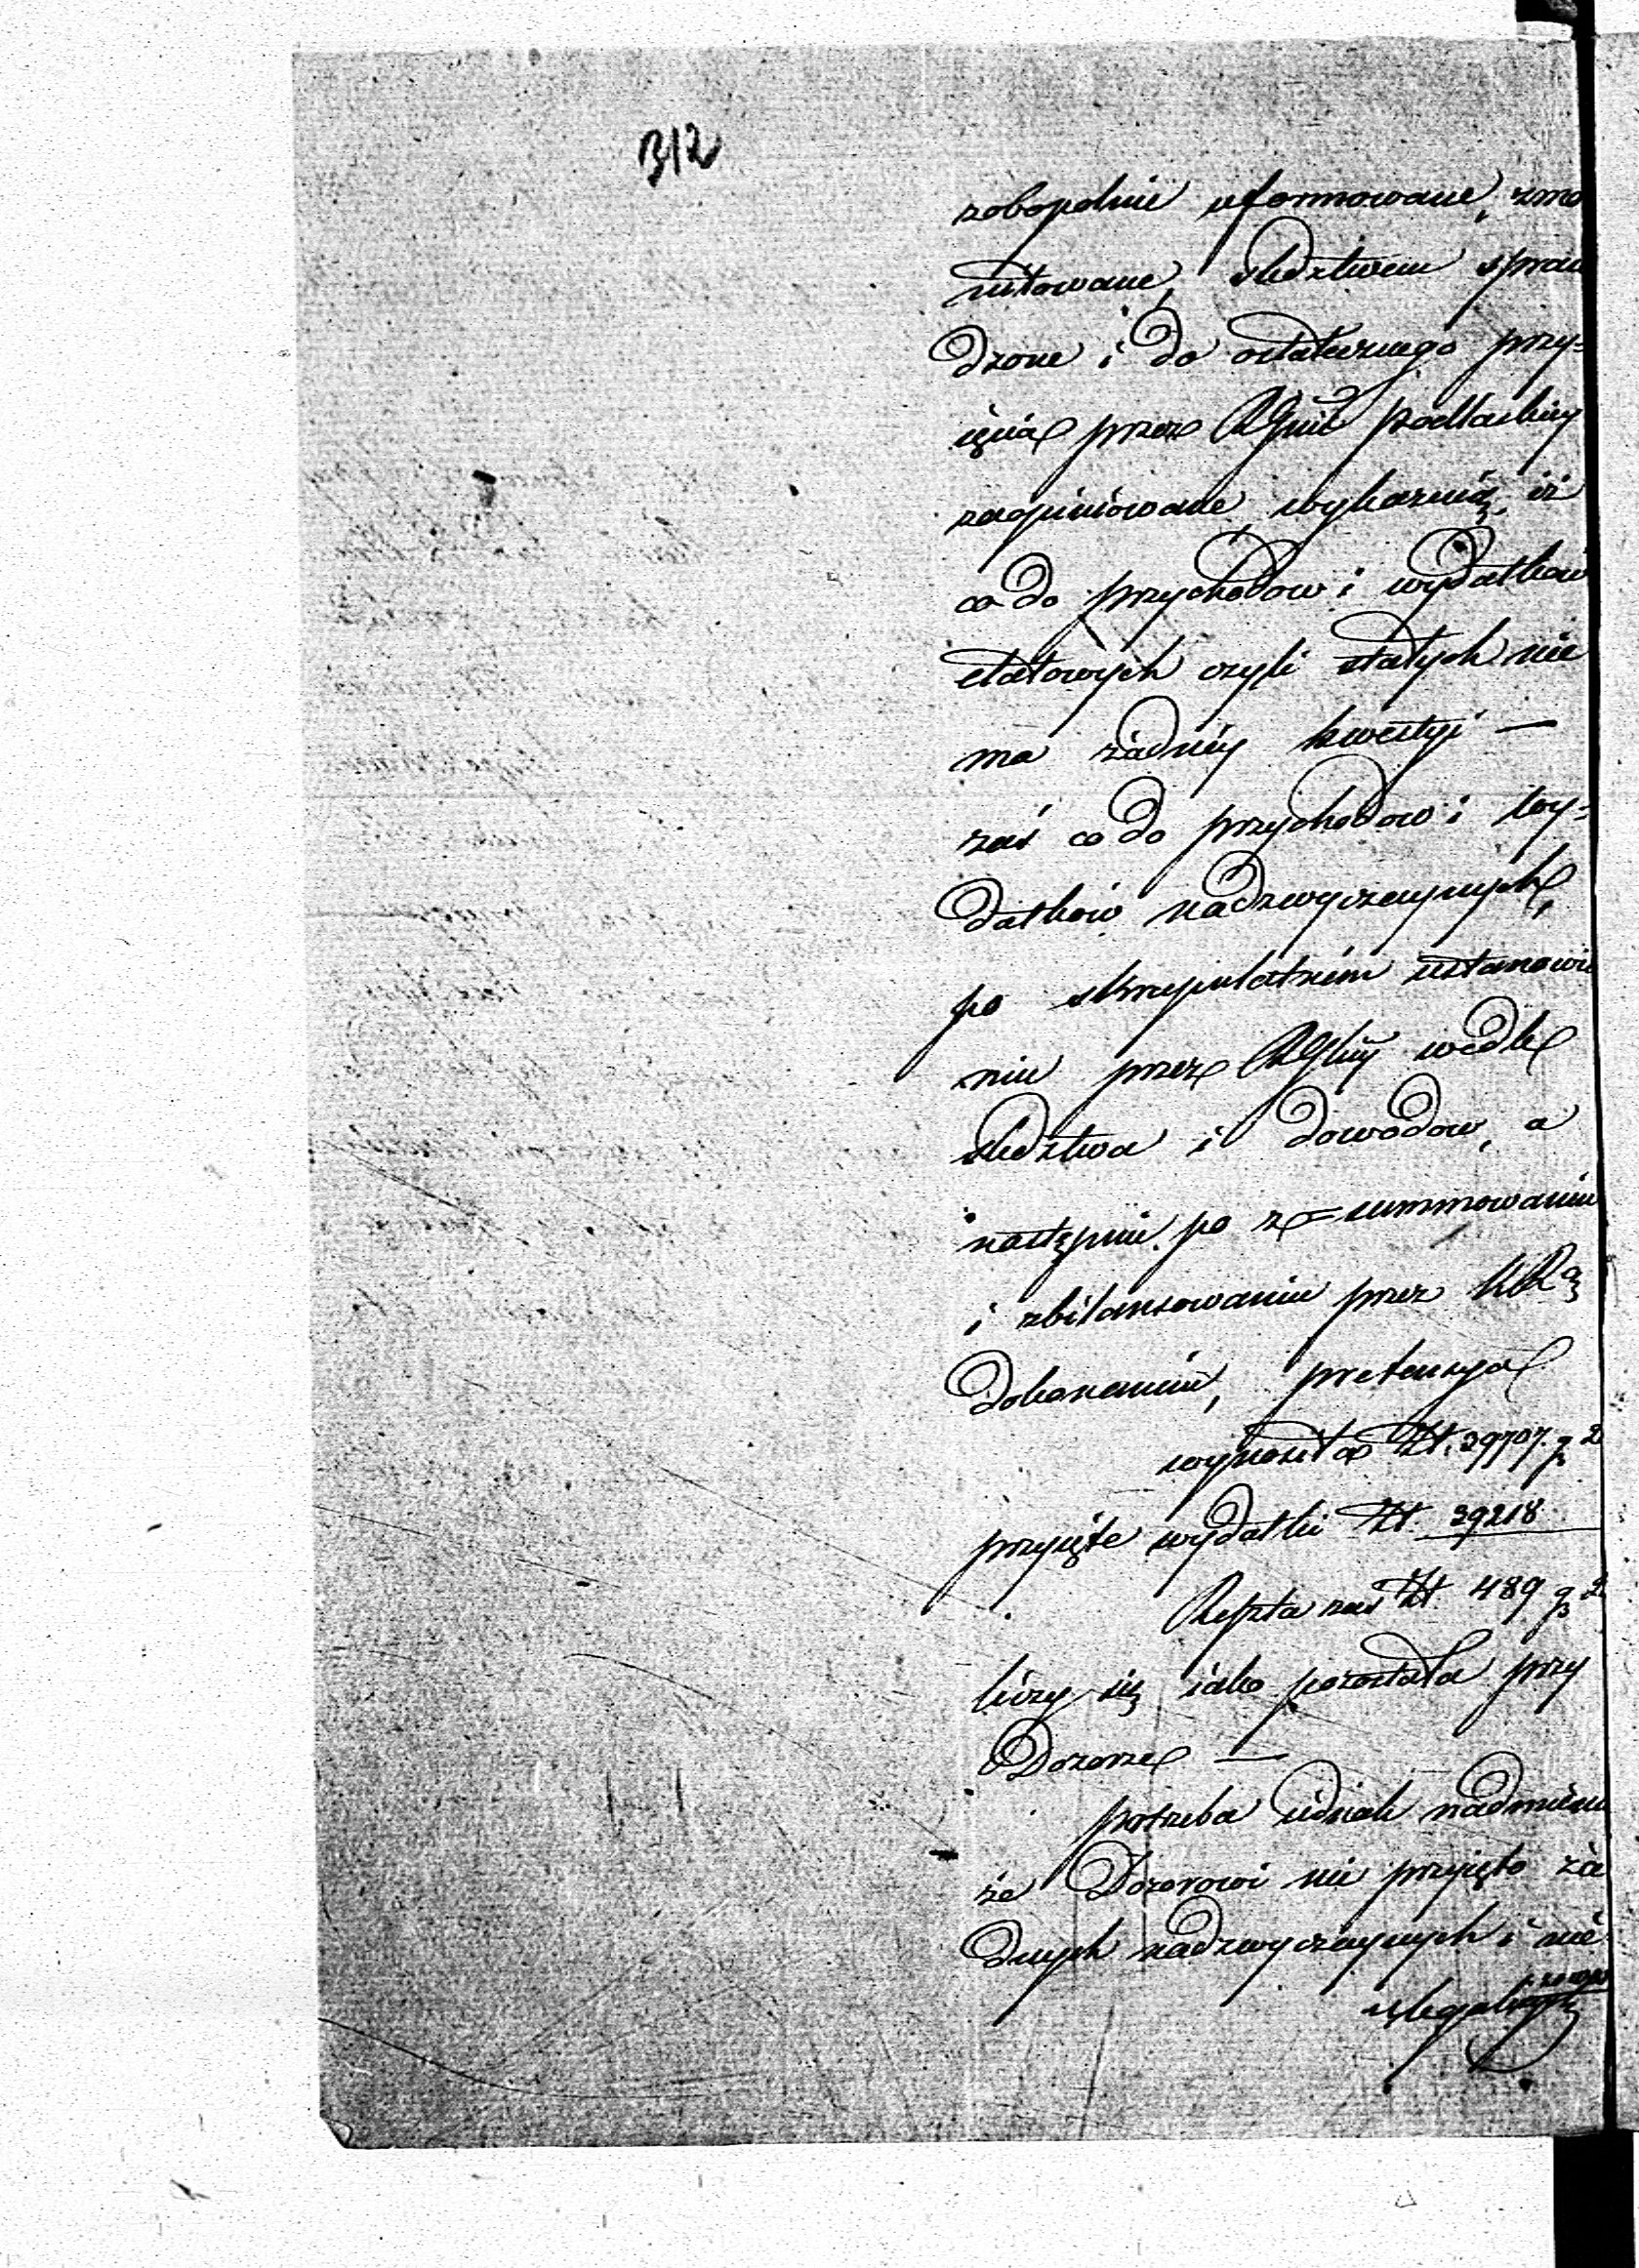 312
zobopolnie uformowane, zmo
nitowane, śledztwem spraw
dzone i do ostatecznego przy=
ięcia przez Podlaskiey
zaopiniowane wykazuią, iż
co do przychodow i wydatkow
etatowych czyli stałych nie
ma żadney kwestyi —
zaś co do przychodow i wy=
datkow nadzwyczaynych,
po skrupulatnem ustanowie
niu przez wedle
śledztwa i dowodow, a
następnie po z=summowaniu
i zbilansowaniu przez
dokonaniu, pretensya
wynosiła Zł. 39707. g 2
przyięte wydatki Zł. 39218
Reszta zaś Zł. 489 g 2
liczy się iako pozostała przy
Dozorze —
potrzeba iednak nadmienic
że Dozorowi nie przyięto ża
dnych nadzwyczaynych i nie